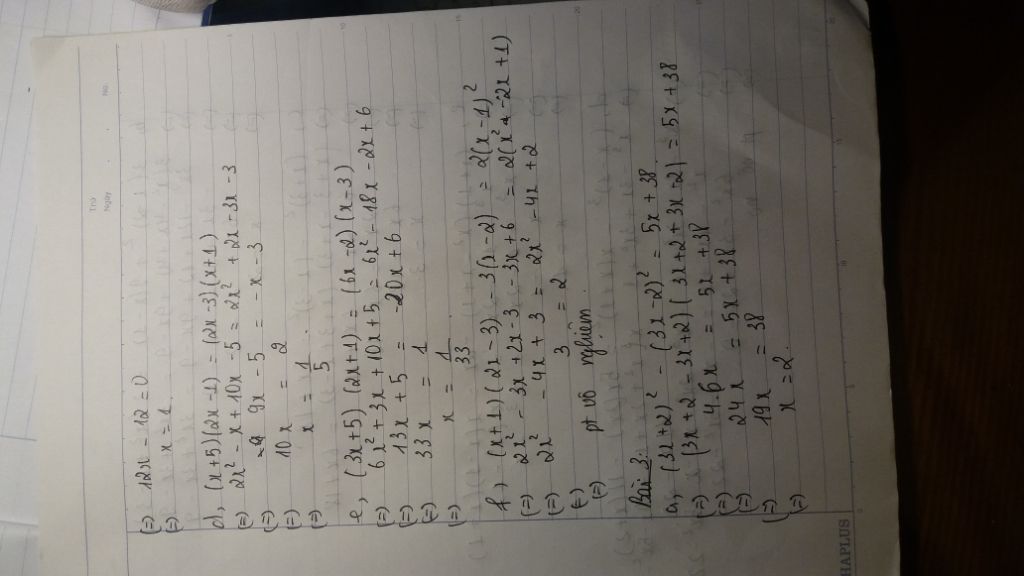 Thứ
Ngày . No.
(=) 12x - 12 = 0
(=) x = 1.
d, (x+5)(2x-1) = (2x-3)(x+1)
(=) 2x² - x + 10x - 5 = 2x² + 2x - 3x - 3
(=) 9x - 5 = -x - 3
(=) 10x = 2
(=) x = 1/5.
e, (3x+5)(2x+1) = (6x-2)(x-3)
(=) 6x² + 3x + 10x + 5 = 6x² - 18x - 2x + 6
(=) 13x + 5 = -20x + 6
(=) 33x = 1
(=) x = 1/33
f, (x+1)(2x-3) - 3(x-2) = 2(x-1)²
(=) 2x² - 3x + 2x - 3 - 3x + 6 = 2(x² - 2x + 1)
(=) 2x² - 4x + 3 = 2x² - 4x + 2
(=) 3 = 2
(=) pt vô nghiệm.
Bài 3:
a, (3x+2)² - (3x-2)² = 5x + 38.
(=) (3x+2-3x+2)(3x+2+3x-2) = 5x + 38
(=) 4.6x = 5x + 38
(=) 24x = 5x + 38
(=) 19x = 38
(=) x = 2.
HAPLUS